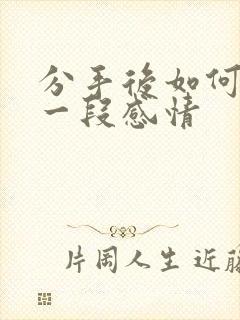 分手後如何
一段感情
片岡人生 近藤